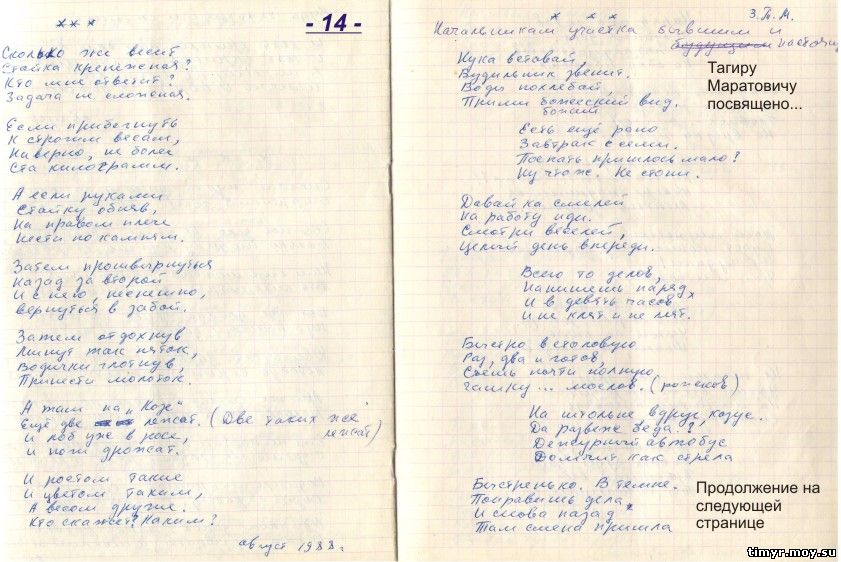 * * *
- 14 -
Сколько же весит
Стойка крепёжная?
Кто мне ответит?
Задача не сложная.
Если прибегнуть
К строгим весам,
Наверно, не более
Ста килограмм.
А если руками
Стойку обняв,
На правом плече
Нести по камням.
Затем прошвырнуться
Назад за второй
И с нею, неспешно,
Вернуться в забой.
Затем отдохнув
Минут так пяток,
Водички глотнув,
Принести молоток.
А там на „Козе"
Ещё две лежат. (Две таких же
лежат)
И лоб уже в росе,
И ноги дрожат.
И ростом такие
И цветом таким,
А весом другие.
Кто скажет? Каким?
август 1988 г
* * *
З.П.М.
Начальникам участка бывшим и
будущим настоящ
Тагиру
Маратовичу
посвящено...
Кука вставай,
Будильник звенит.
Воды похлебай,
Прими божеский вид.
Есть ещё рано
Завтрак с семи.
Поспать пришлось мало?
Ну что ж. Не стони.
Давай ка смелей
На работу иди.
Смотри веселей,
Целый день впереди.
Всего то делов,
Напишешь наряд,
И в девять часов
И не клят и не мят.
Быстро в столовую
Раз, два и готов,
Съешь почти полную
чашку ... мослов. (рожков)
На штольне вдруг казус.
Да разве беда?
Дежурный автобус
Домчит как стрела
Быстренько. В темпе.
Поправишь дела
И снова назад
Там смена пришла
Продолжение на
следующей
странице
timyr.moy.su